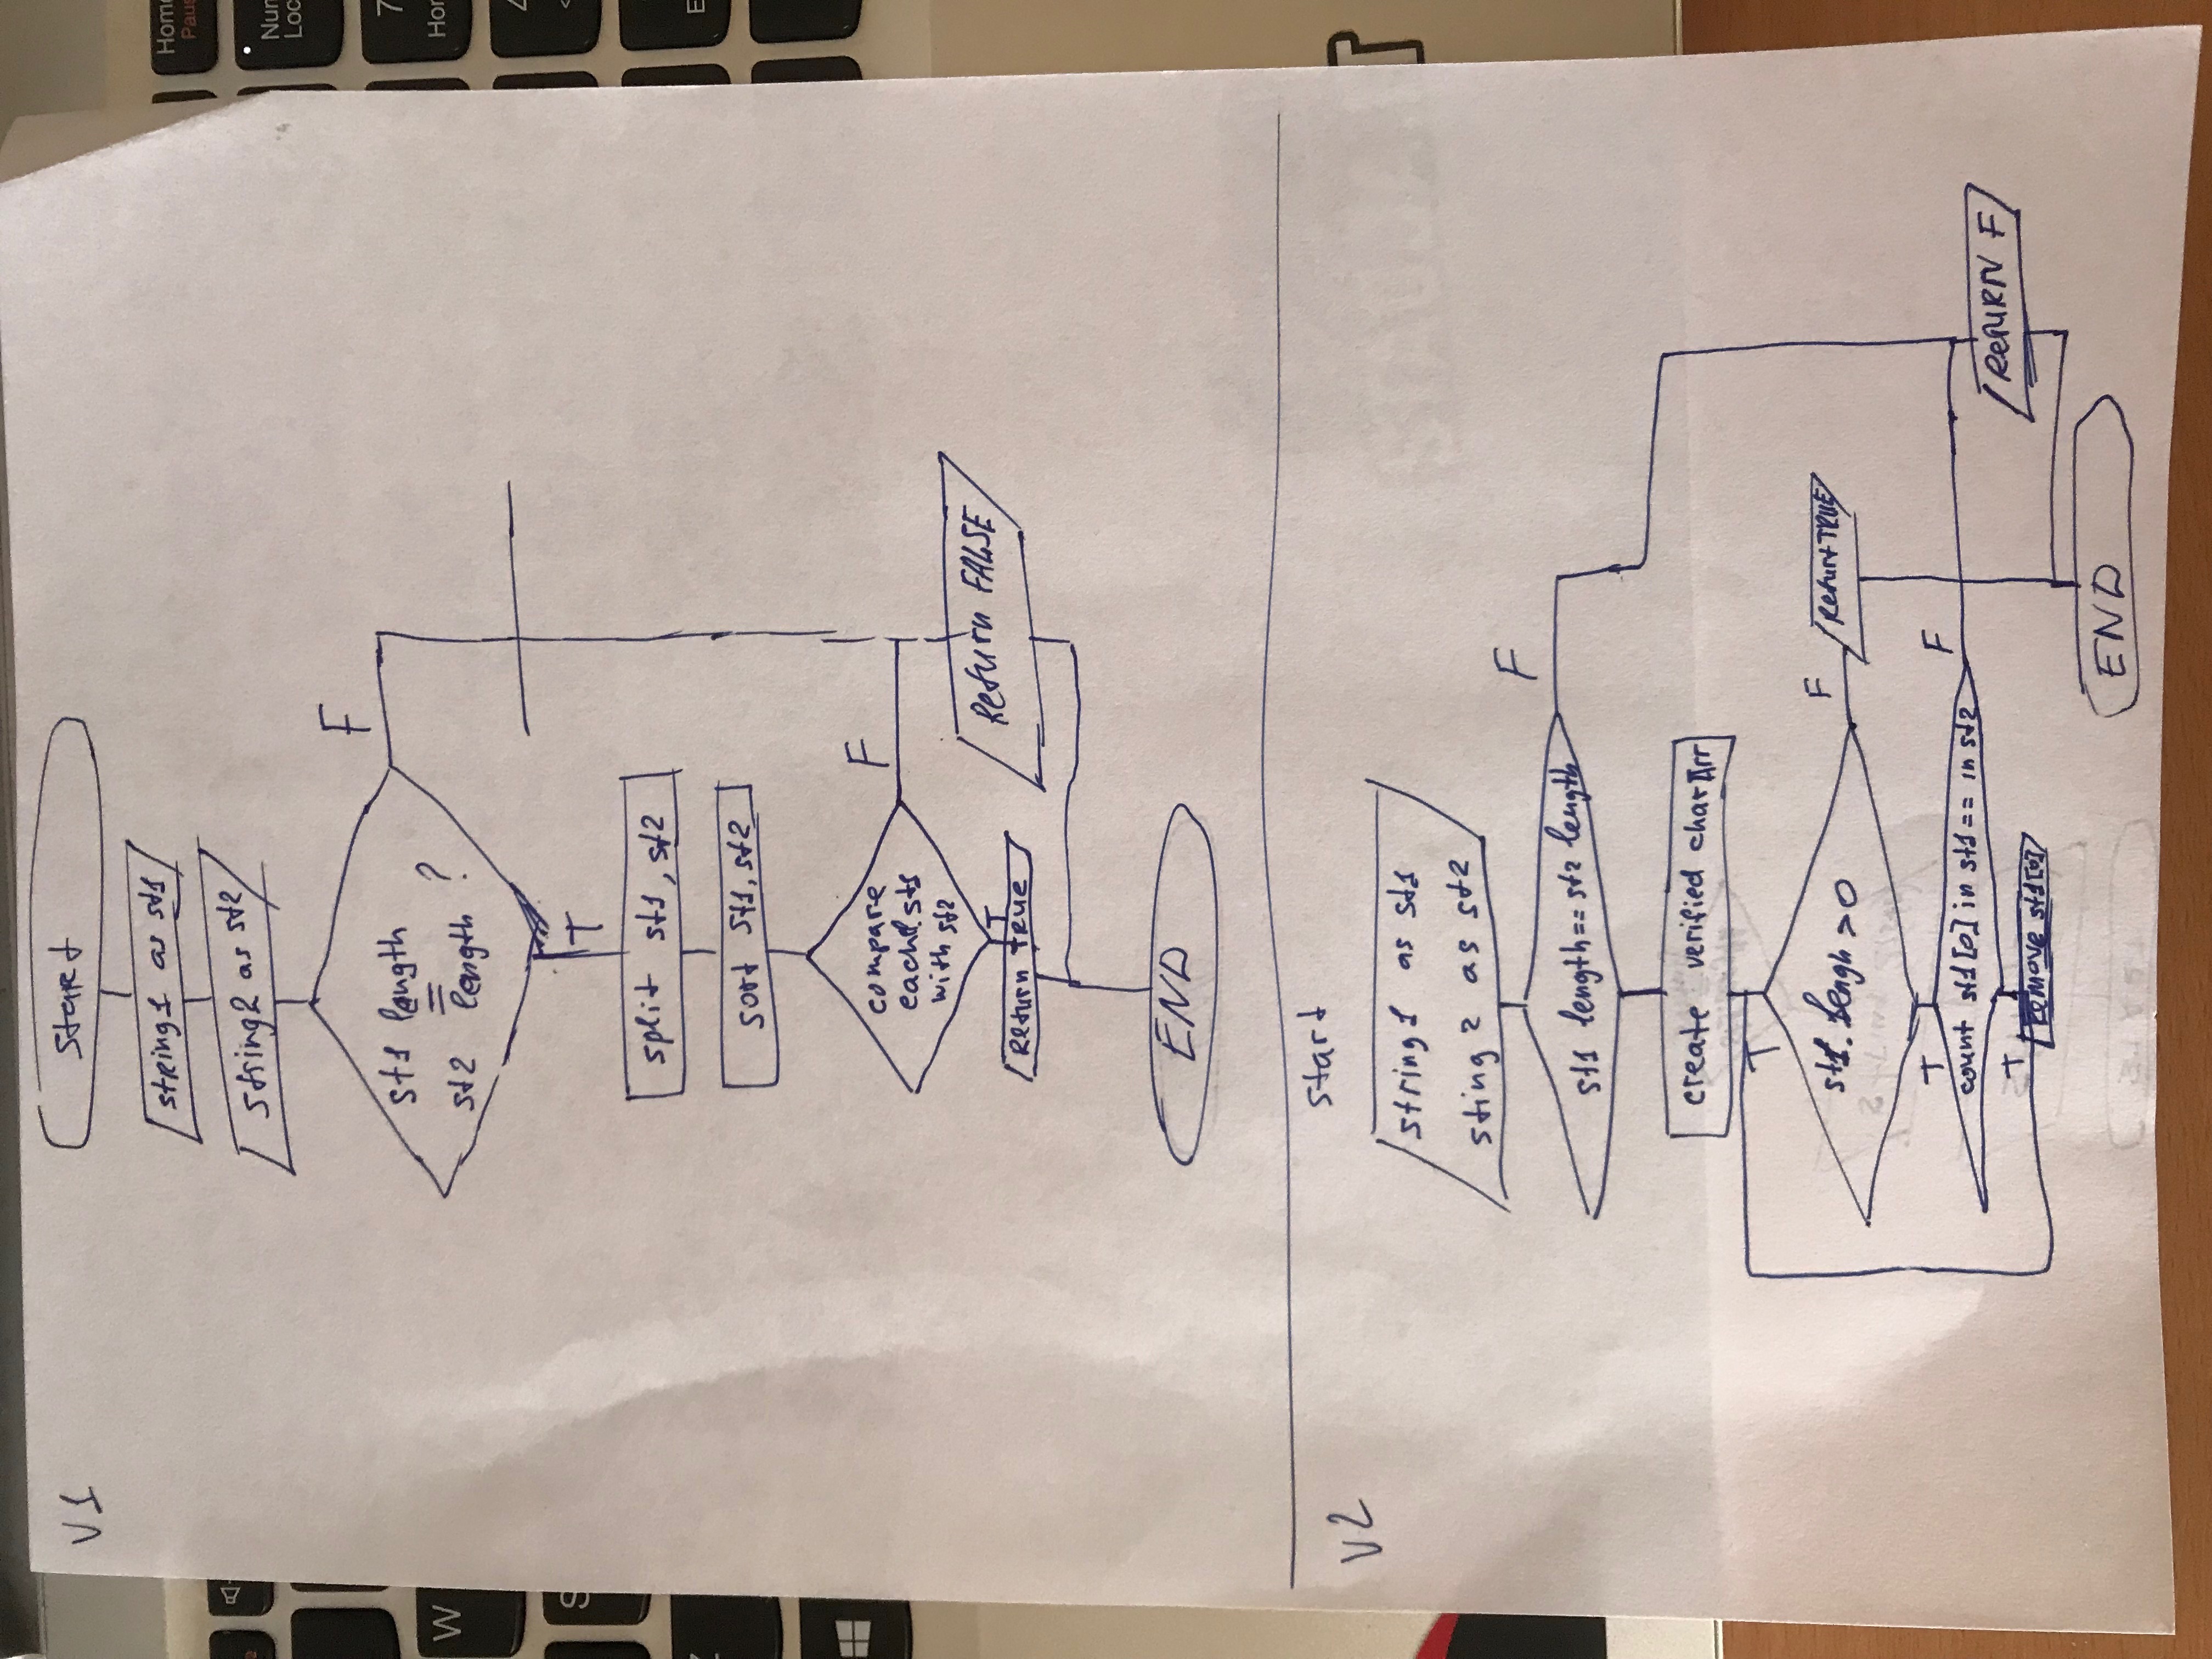 V1
Start
string1 as st1
string2 as st2
F
st1 length
=
st2 length ?
T
split st1, st2
sort st1, st2
compare
F
with st2
T
Return TRUE
Return FALSE
END
start
V2
string1 as st1
sting 2 as st2
F
st1 length == st2 length
create verified charArr
T
st1.lengh > 0
F
Return TRUE
T
count st1[0] in st1 == in st2
F
T
Remove st1[0]
RETURN F
END
Home
Num
Loc
7
W
S
Z